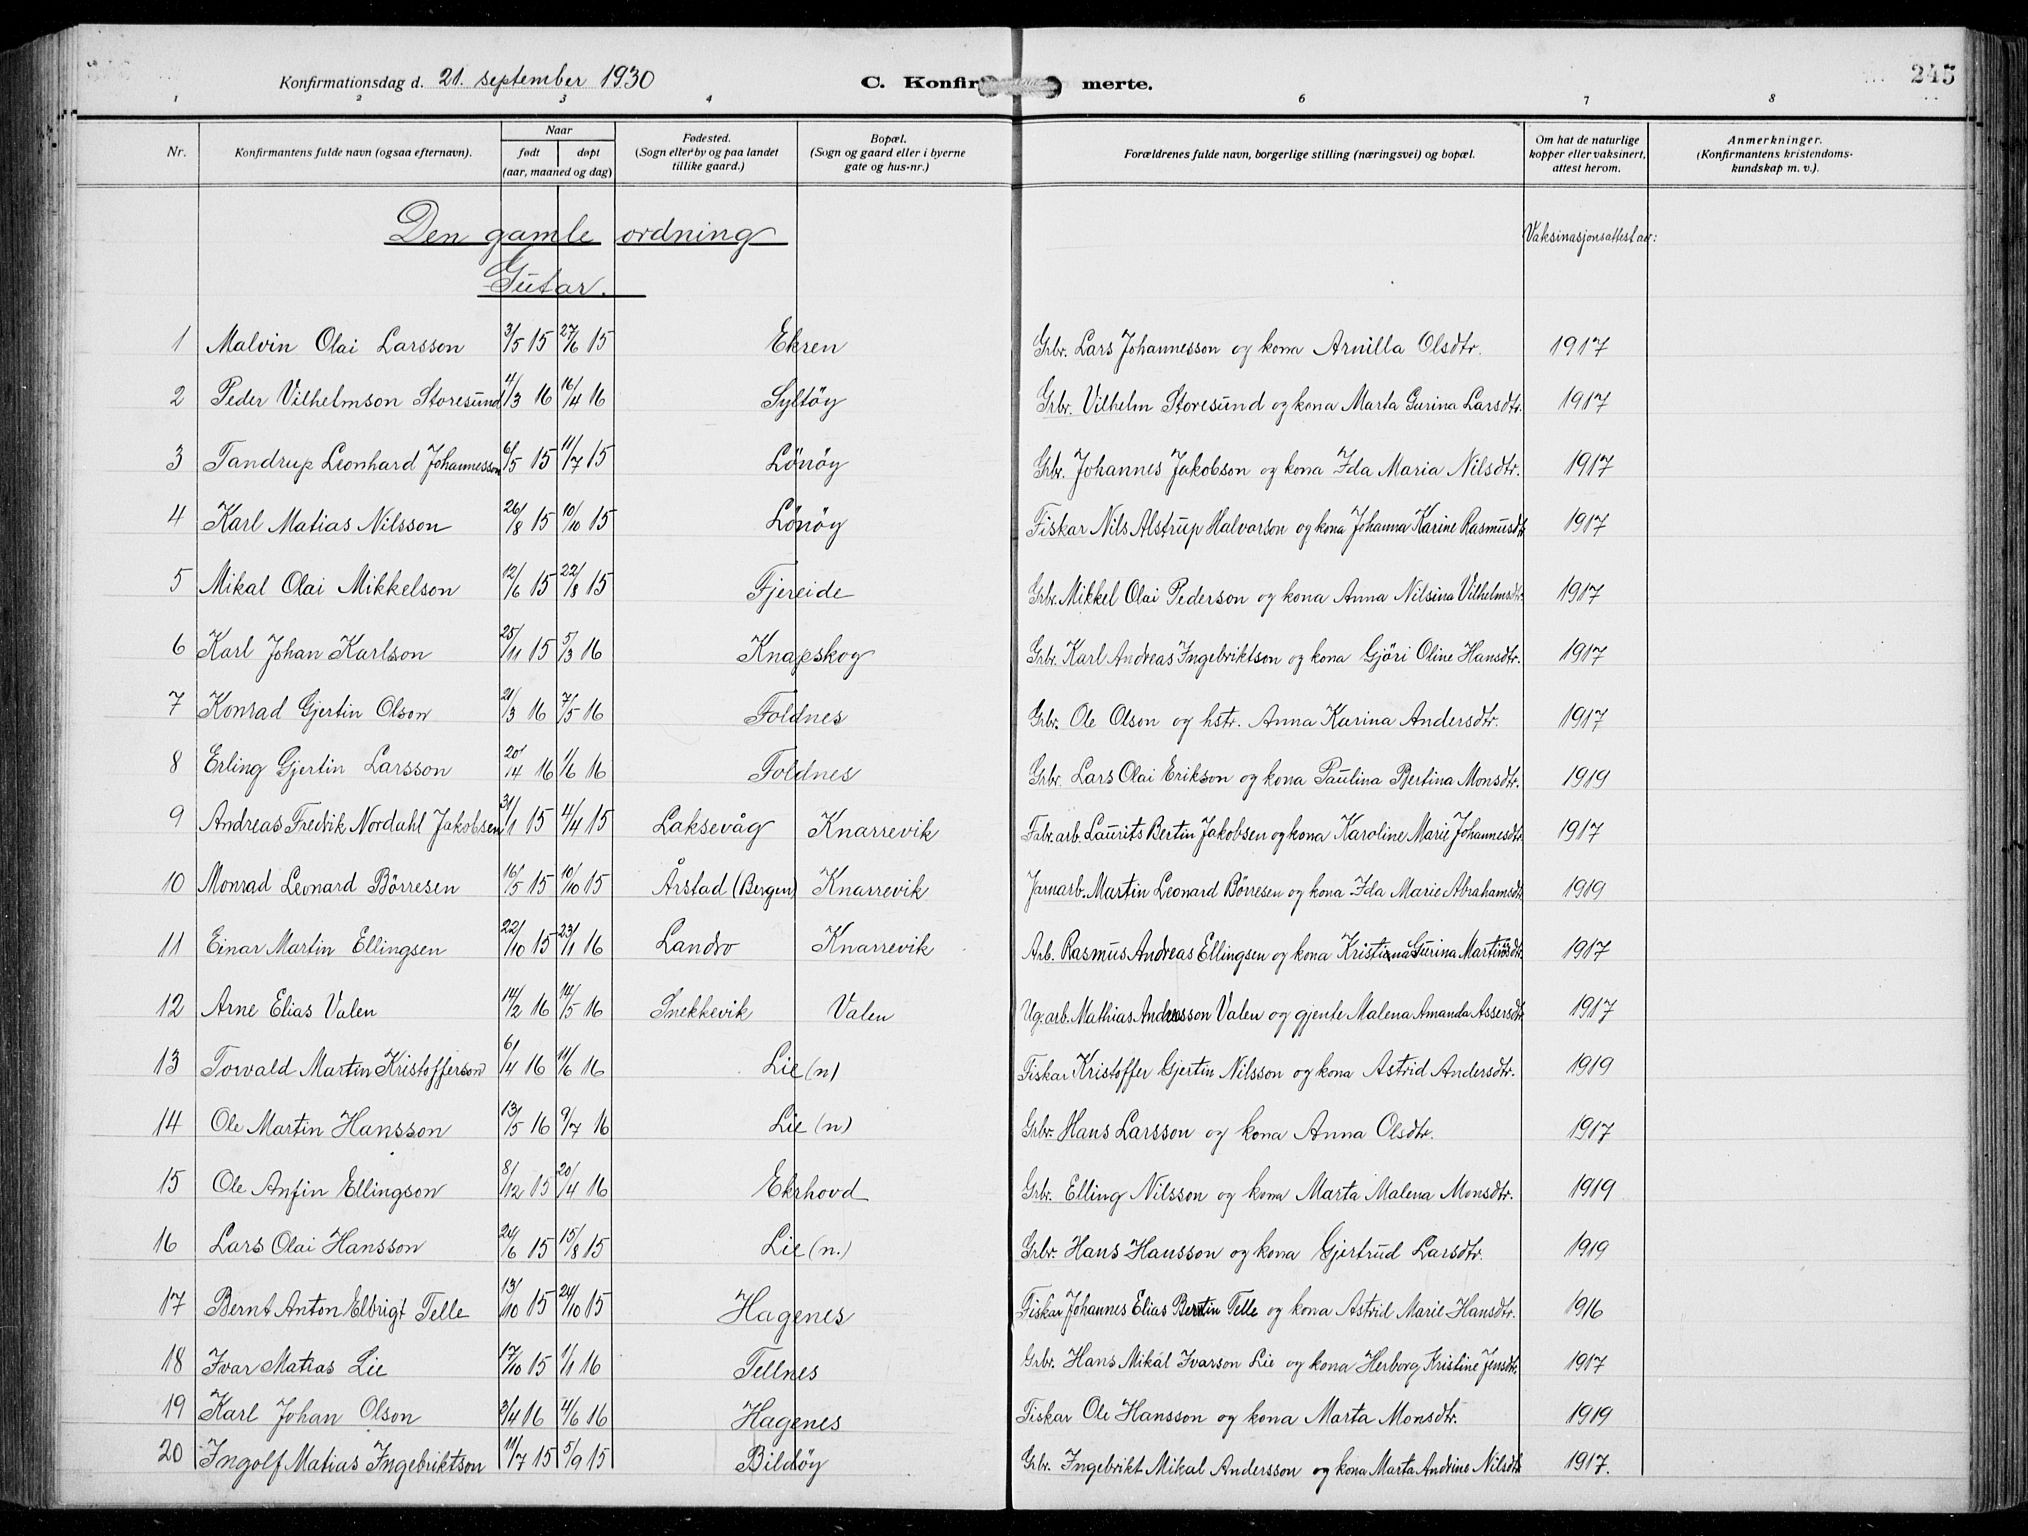 245
Konfirmationsdag d. 21. september 1930 C. Konfir merte.
1 2 3 4 6 7 8
Nr. Konfirmantens fulde navn (ogsaa efternavn). Naar født døpt (aar, maaned og dag) Fødested. (Sogn eller by og paa landet tillike gaard.) Bopæl. (Sogn og gaard eller i byerne gate og hus-nr.) Forældrenes fulde navn, borgerlige stilling (næringsvei) og bopæl. Om hat de naturlige kopper eller vaksinert, attest herom. Anmerkninger. (Konfirmantens kristendoms-kundskap m. v.).
Den gamle ordning Vaksinasjonsattest av:
Gutar.
1 Malvin Olai Larsson 3/5 15 27/6 15 Ekren Grbr. Lars Johannesson og kona Arnilla Olsdtr. 1917
2 Peder Vilhelmson Storesund 4/3 16 16/4 16 Syltöy Grbr. Vilhelm Storesund og kona Marta Gurina Larsdtr. 1917
3 Tandrup Leonhard Johannesson 6/5 15 11/7 15 Lönöy Grbr. Johannes Jakobson og kona Ida Maria Nilsdtr. 1917
4 Karl Matias Nilsson 26/8 15 10/10 15 Lönöy Fiskar Nils Alstrup Halvorson og kona Johanna Karine Rasmusdtr 1917
5 Mikal Olai Mikkelson 12/6 15 22/8 15 Fjereide Grbr. Mikkel Olai Pederson og kona Anna Nilsina Vilhelmsdtr. 1917
6 Karl Johan Karlson 25/11 15 5/3 16 Knapskog Grbr. Karl Andreas Ingebriktson og kona Gjöri Oline Hansdtr. 1917
7 Konrad Gjertin Olson 21/3 16 7/5 16 Foldnes Grbr. Ole Olson og hstr. Anna Karina Andersdtr. 1917
8 Erling Gjertin Larsson 20/4 16 1/6 16 Foldnes Grbr. Lars Olai Erikson og kona Paulina Bjertina Monsdtr. 1919
9 Andreas Fredrik Nordahl Jakobsen 31/1 15 4/4 15 Laksevåg Knarrevik Fabr. arb. Laurits Bertin Jakobsen og kona Karoline Marie Johannesdtr. 1917
10 Monrad Leonard Börresen 16/5 15 10/10 15 Årstad (Bergen) Knarrevik Jarnarb. Martin Leonard Börresen og kona Ida Marie Abrahamsdtr 1919
11 Einar Martin Ellingsen 22/10 15 23/1 16 Landro Knarrevik Arb. Rasmus Andreas Ellingsen og kona Kristina Gurina Martinsdtr. 1917
12 Arne Elias Valen 14/2 16 14/5 16 Snekkevik Valen Ug. arb. Mathias Andersson Valen og gjente Malena Amanda Assersdtr 1917
13 Torvald Martin Kristofferson 6/4 16 11/6 16 Lie (n) Fiskar Kristoffer Gjertin Nilsson og kona Astrid Andersdtr. 1919
14 Ole Martin Hansson 13/5 16 9/7 16 Lie (n) Grbr. Hans Larsson og kona Anna Olsdtr. 1917
15 Ole Anfin Ellingson 8/12 15 20/4 16 Ekrhovd Grbr. Elling Nilsson og kona Marta Malena Monsdtr. 1919
16 Lars Olai Hansson 24/6 15 15/8 15 Lie (n.) Grbr. Hans Hansson og kona Gjertrud Larsdtr. 1919
17 Bernt Anton Elbrigt Telle 13/10 15 24/10 15 Hagenes Fiskar Johannes Elias Berntin Telle og kona Astrid Marie Hansdtr. 1916
18 Ivar Matias Lie 17/10 15 1/1 16 Tellnes Grbr. Hans Mikal Ivarson Lie og kona Herborg Kristine Jensdtr. 1917
19 Karl Johan Olson 3/4 16 4/6 16 Hagenes Fiskar Ole Hansson og kona Marta Monsdtr. 1919
20 Ingolf Matias Ingebriktson 11/7 15 5/9 15 Bildöy Grbr. Ingebrikt Mikal Andersson og kona Marta Andrine Nilsdtr 1917.